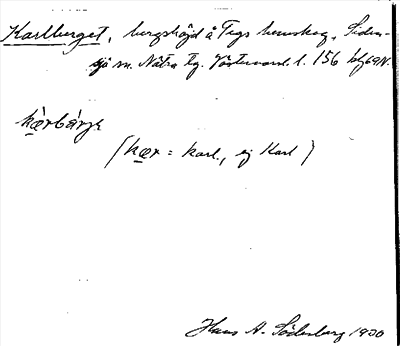 Karlberget, bergshöjd å Tegs hemskog, Siden-
sjö sn. Nätra tg. Västernorrl. l. 156 bf 69 N.
kærbárje
(kær = karl, ej Karl)
Hans A. Söderberg 1930